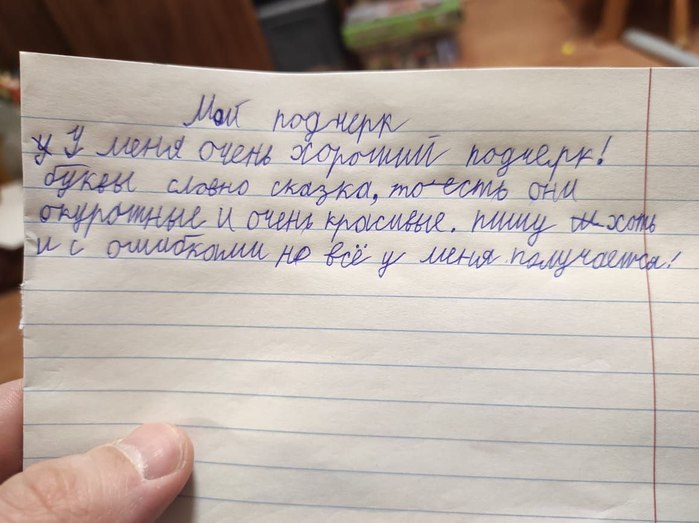 Мой подчерк
у У меня очень хороший подчерк!
буквы словно сказка, то-есть они
окуротные и очень красивые. пишу хоть
и с ошибками но всё у меня получается!